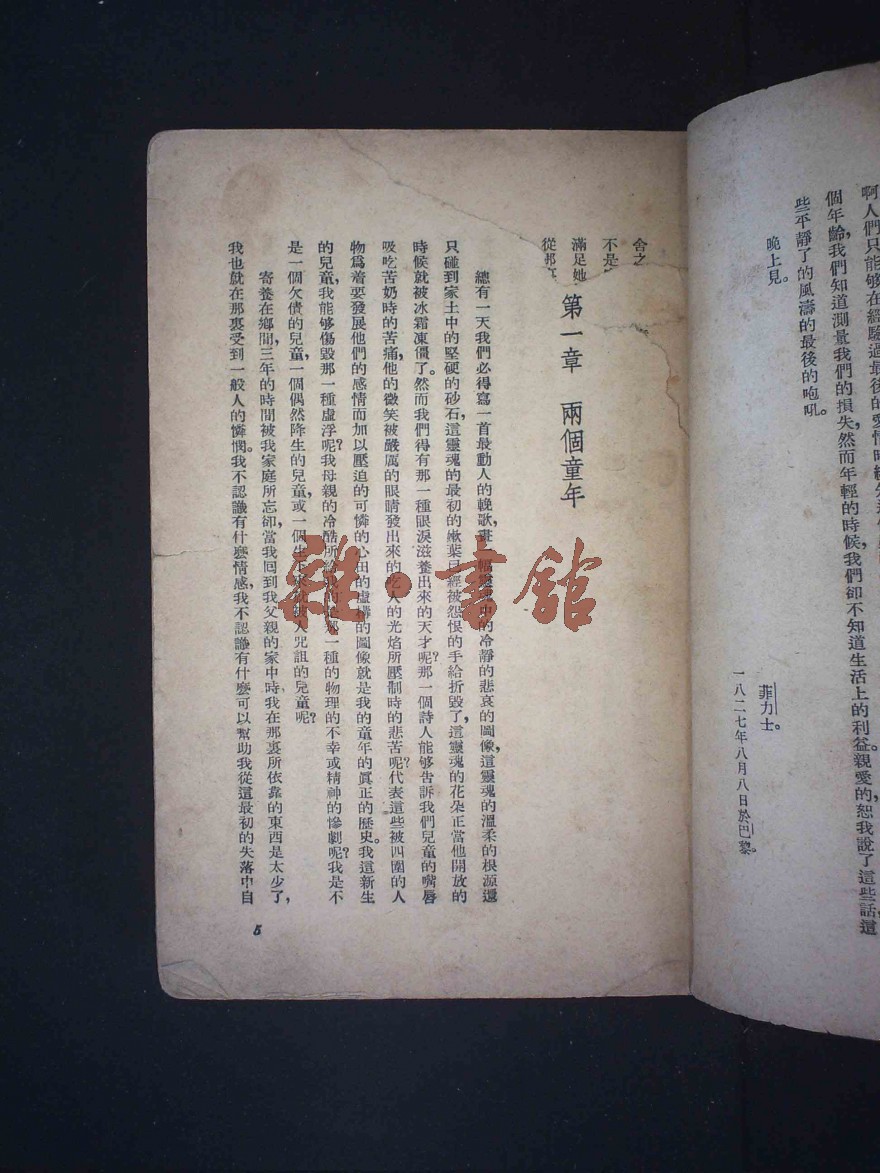 啊人們只能够在經驗過最後的愛情時
個年齡，我們知道測量我們的損失，然而年輕的時候我們卻不知道生活上的利益。親愛的，恕我說了這些話，這
些平靜了的風濤的最後的咆吼。
晚上見。
菲力士。
一八二七年八月八日於巴黎。
舍之
不是
滿足她
從那
第一章 兩個童年
總有一天我們必得寫一首最動人的輓歌，畫一幅靈魂史的冷靜的悲哀的圖像，這靈魂的溫柔的根源還
只碰到家土中的堅硬的砂石，這靈魂的最初的嫩葉已經被怨恨的手給折毀了，這靈魂的花朵正當他開放的
時候就被冰霜凍僵了。然而我們得有那一種眼淚滋養出來的天才呢？那一個詩人能够告訴我們兒童的嘴唇
吸吃苦奶時的苦痛，他的微笑被嚴厲的眼睛發出來的吃人的光焰所壓制時的悲苦呢？代表這些被四圍的人
物爲着要發展他們的感情而加以壓迫的可憐的心田的虛構的圖像就是我的童年的眞正的歷史。我這新生
的兒童，我能够傷毀那一種虛浮呢？我母親的冷酷所給我的是那一種的物理的不幸或精神的慘劇呢？我是不
是一個欠債的兒童，一個偶然降生的兒童，或一個生下來就被人咒詛的兒童呢？
寄養在鄉間，三年的時間被我家庭所忘卻，當我回到我父親的家中時，我在那裏所依靠的東西是太少了，
我也就在那裏受到一般人的憐憫。我不認識有什麼情感，我不認識有什麼可以幫助我從這最初的失落中自
5
雜·書館